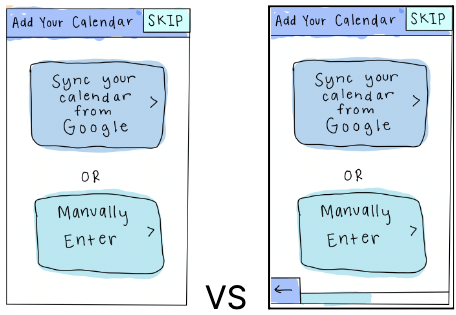 Add Your Calendar SKIP
Sync your
calendar
from
Google
OR
Manually
Enter
VS
Add Your Calendar SKIP
Sync your
calendar
from
Google
OR
Manually
Enter